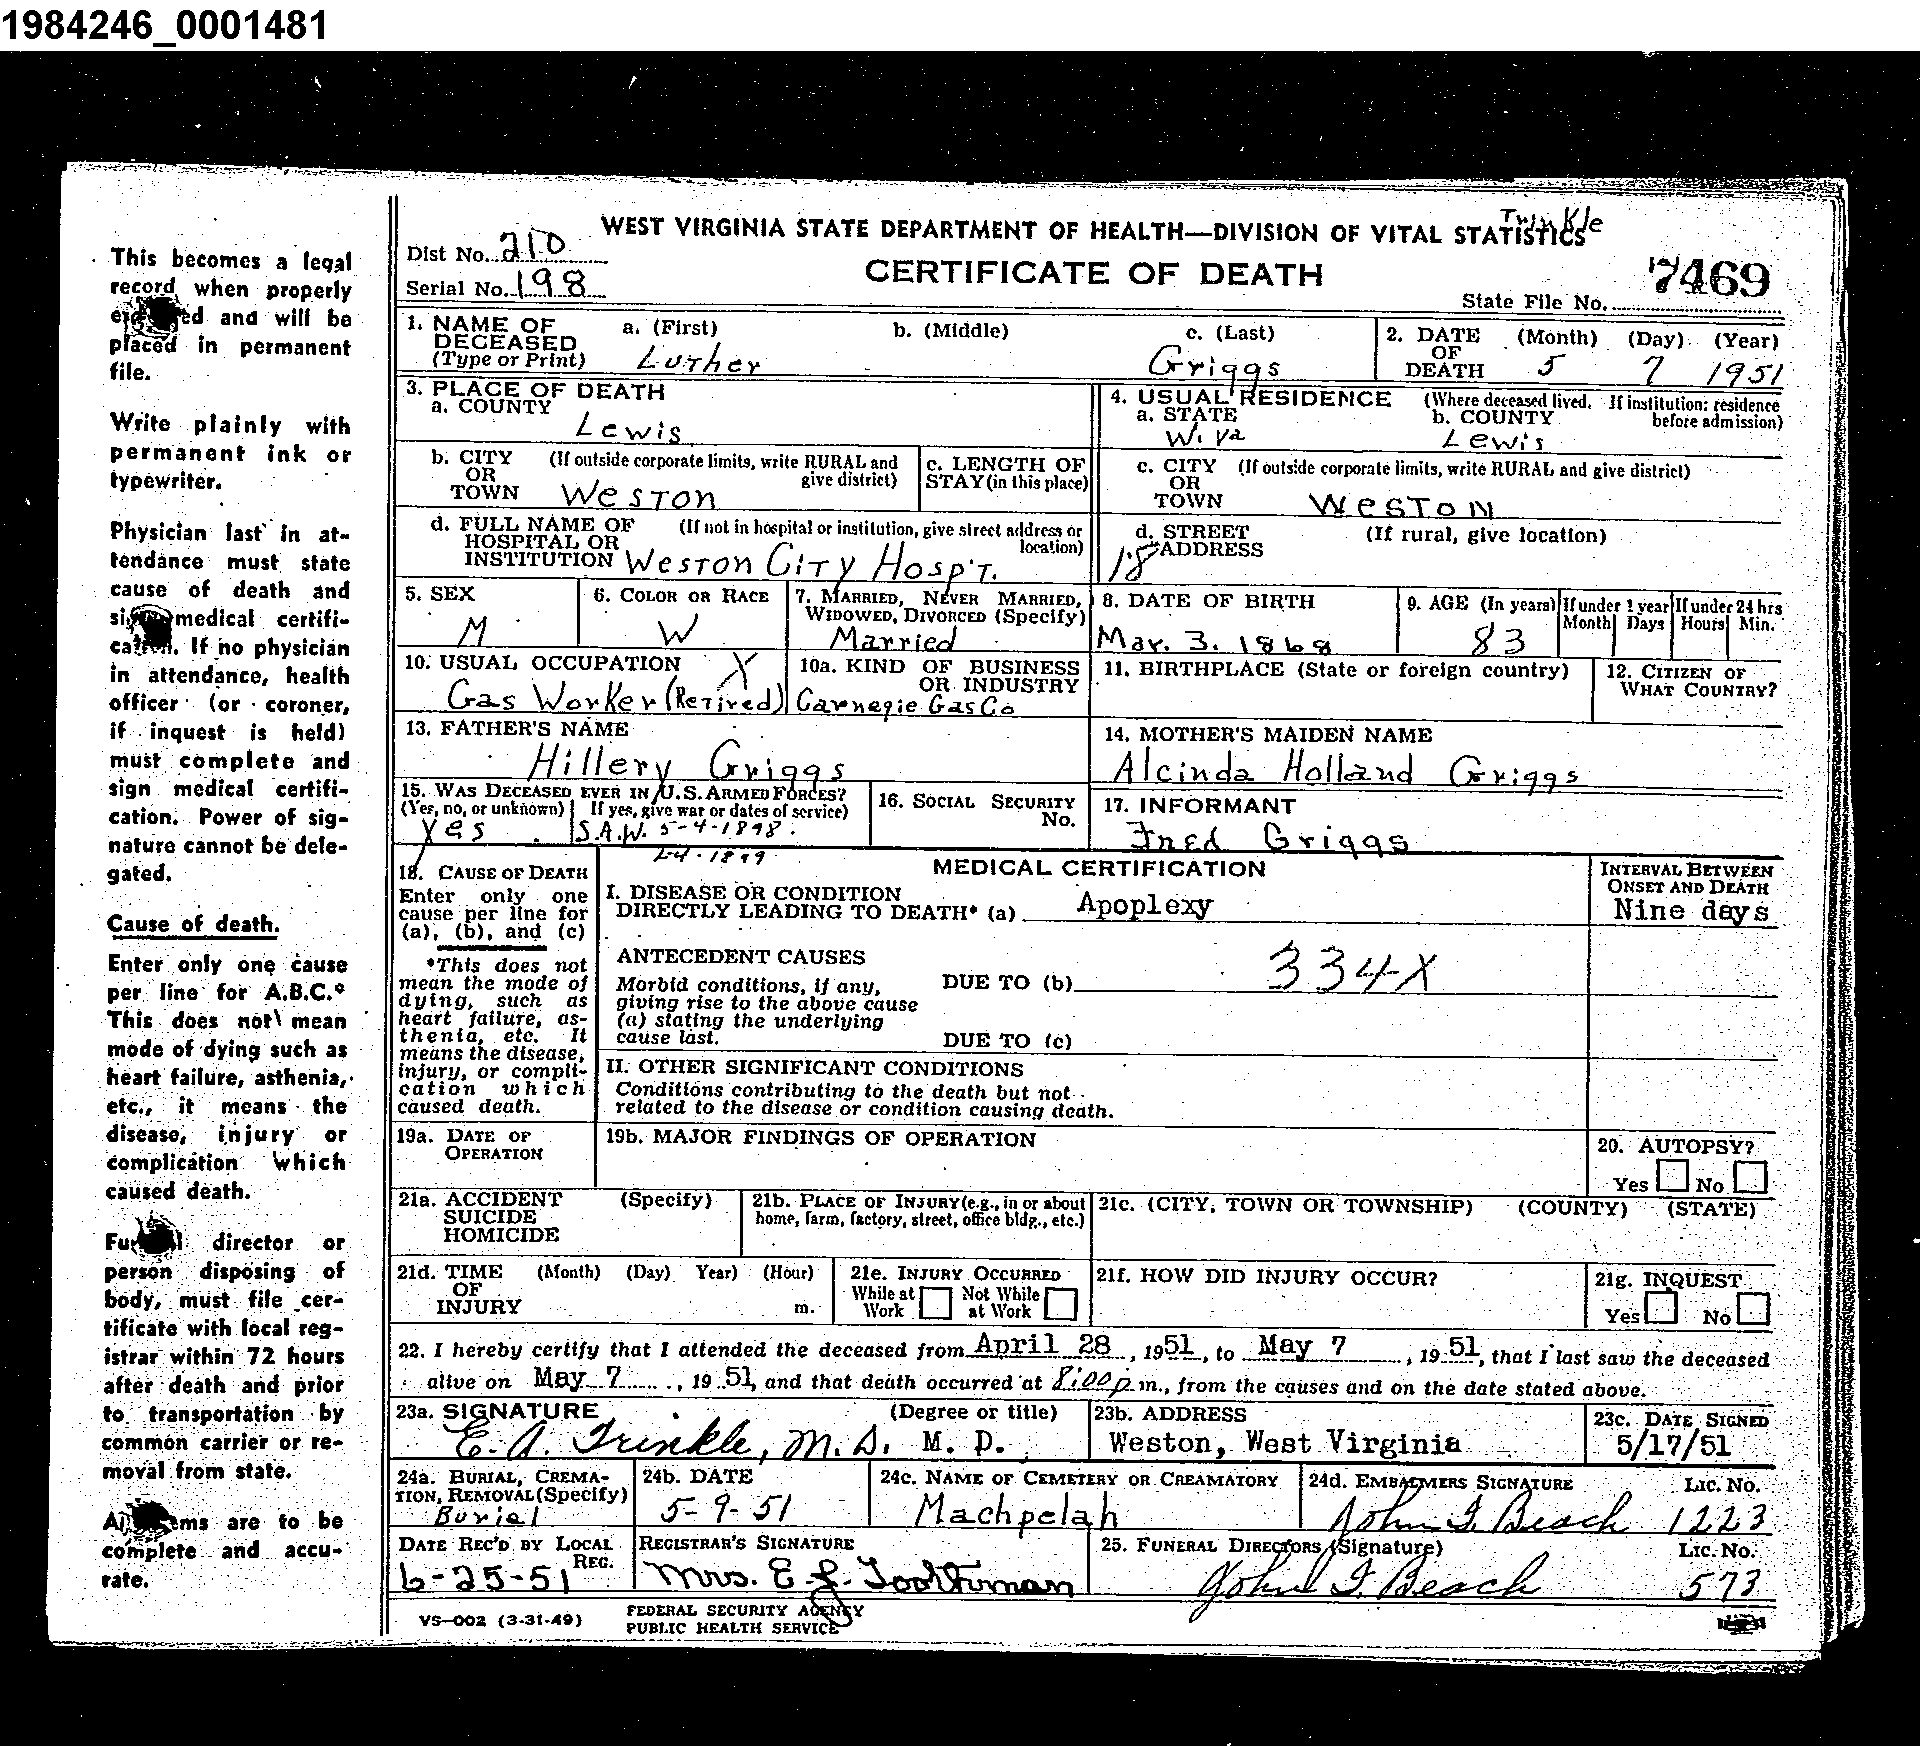 1984246_0001481
This becomes a legal
record when properly
and will be
placed in permanent
file.
Write plainly with
permanent ink or
typewriter.
Physician last in at-
tendance must state
cause of death and
medical certifi-
If no physician
in attendance, health
officer (or coroner,
if inquest is held)
must complete and
sign medical certifi-
cation. Power of sig-
nature cannot be dele-
gated.
Cause of death.
Enter only one cause
per line for A.B.C.*
This does not mean
mode of dying such as
heart failure, asthenia,
etc., it means the
disease, injury or
complication which
caused death.
director or
person disposing of
body, must file cer-
tificate with local reg-
istrar within 72 hours
after death and prior
to transportation by
common carrier or re-
moval from state.
are to be
complete and accu-
rate.
Trinkle
WEST VIRGINIA STATE DEPARTMENT OF HEALTH—DIVISION OF VITAL STATISTICS
Dist No. 210
CERTIFICATE OF DEATH
Serial No. 198
State File No. 7469
1. NAME OF DECEASED (Type or Print) a. (First) Luther b. (Middle) c. (Last) Griggs
2. DATE OF DEATH (Month) (Day) (Year) 5 7 1951
3. PLACE OF DEATH
a. COUNTY Lewis
4. USUAL RESIDENCE (Where deceased lived. If institution: residence before admission)
a. STATE W. Va b. COUNTY Lewis
b. CITY OR TOWN (If outside corporate limits, write RURAL and give district) Weston
c. LENGTH OF STAY (in this place)
c. CITY OR TOWN (If outside corporate limits, write RURAL and give district) Weston
d. FULL NAME OF HOSPITAL OR INSTITUTION (If not in hospital or institution, give street address or location) Weston City Hosp't.
d. STREET ADDRESS (If rural, give location) 18
5. SEX M
6. COLOR OR RACE W
7. MARRIED, NEVER MARRIED, WIDOWED, DIVORCED (Specify) Married
8. DATE OF BIRTH Mar. 3. 1868
9. AGE (In years) 83 If under 1 year Month Days If under 24 hrs Hours Min.
10. USUAL OCCUPATION X Gas Worker (Retired)
10a. KIND OF BUSINESS OR INDUSTRY Carnegie Gas Co
11. BIRTHPLACE (State or foreign country)
12. CITIZEN OF WHAT COUNTRY?
13. FATHER'S NAME Hillery Griggs
14. MOTHER'S MAIDEN NAME Alcinda Holland Griggs
15. WAS DECEASED EVER IN U.S. ARMED FORCES?
(Yes, no, or unknown) If yes, give war or dates of service)
Yes S.A.W. 5-4-1898.
16. SOCIAL SECURITY No.
17. INFORMANT Fred Griggs
18. CAUSE OF DEATH
Enter only one
cause per line for
(a), (b), and (c)
*This does not
mean the mode of
dying, such as
heart failure, as-
thenia, etc. It
means the disease,
injury, or compli-
cation which
caused death.
MEDICAL CERTIFICATION
INTERVAL BETWEEN ONSET AND DEATH
I. DISEASE OR CONDITION
DIRECTLY LEADING TO DEATH* (a) Apoplexy Nine days
ANTECEDENT CAUSES
Morbid conditions, if any,
giving rise to the above cause
(a) stating the underlying
cause last.
DUE TO (b) 334X
DUE TO (c)
II. OTHER SIGNIFICANT CONDITIONS
Conditions contributing to the death but not
related to the disease or condition causing death.
19a. DATE OF OPERATION
19b. MAJOR FINDINGS OF OPERATION
20. AUTOPSY?
Yes No
21a. ACCIDENT SUICIDE HOMICIDE (Specify)
21b. PLACE OF INJURY (e.g., in or about home, farm, factory, street, office bldg., etc.)
21c. (CITY, TOWN OR TOWNSHIP) (COUNTY) (STATE)
21d. TIME OF INJURY (Month) (Day) Year) (Hour) m.
21e. INJURY OCCURRED
While at Work Not While at Work
21f. HOW DID INJURY OCCUR?
21g. INQUEST
Yes No
22. I hereby certify that I attended the deceased from April 28, 1951, to May 7, 1951, that I last saw the deceased
alive on May 7, 1951, and that death occurred at 8:00 p m., from the causes and on the date stated above.
23a. SIGNATURE (Degree or title) E. A. Trinkle, M.D. M. D.
23b. ADDRESS Weston, West Virginia
23c. DATE SIGNED 5/17/51
24a. BURIAL, CREMATION, REMOVAL (Specify) Burial
24b. DATE 5-9-51
24c. NAME OF CEMETERY OR CREAMATORY Machpelah
24d. EMBALMERS SIGNATURE LIC. NO. John F. Beach 1223
DATE REC'D BY LOCAL REG. 6-25-51
REGISTRAR'S SIGNATURE Mrs. E
25. FUNERAL DIRECTORS (Signature) LIC. NO. John F. Beach 573
VS—002 (3-31-49)
FEDERAL SECURITY AGENCY
PUBLIC HEALTH SERVICE